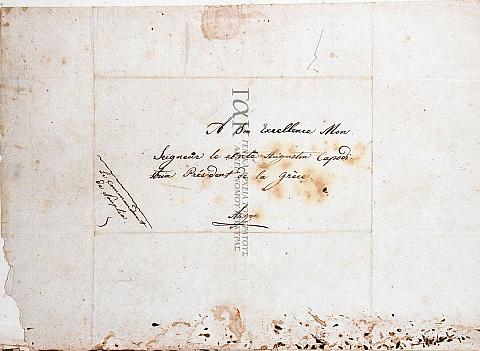 A Son Excellence Mon
Seigneur le comte Augustin Capod'
Président de la Grèce
Argos
ΓΑΚ
ΓΕΝΙΚΑ ΑΡΧΕΙΑ ΤΟΥ ΚΡΑΤΟΥΣ
ΑΡΧΕΙΑ ΝΟΜΟΥ ΚΕΡΚΥΡΑΣ